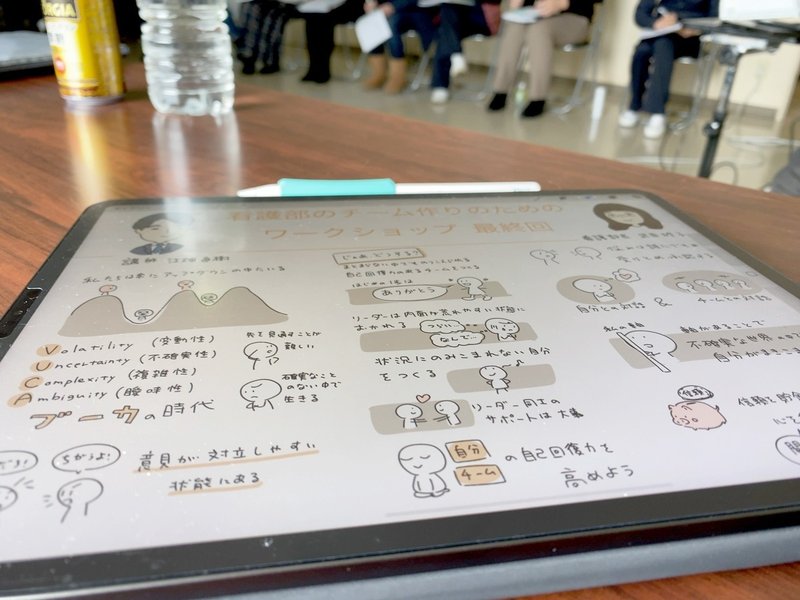 看護部のチーム作りのための
ワークショップ 最終回
講師
私たちは常にアップダウンの中にいる
Volatility (変動性)
Uncertainty (不確実性)
Complexity (複雑性)
Ambiguity (曖昧性)
ブーカの時代
先を見通すことが
難しい
確実なこと
のない中で
生きる
ちがうよ!
意見が対立しやすい
状態にある
じゃあ どうする?
自己回復力のあるチームをつくる
はじめの1歩は
ありがとう
リーダーは内面が荒れやすい状態に
おかれる
つらい…
なんで…
状況にのみこまれない自分
をつくる
リーダー同士の
サポートは大事
自分
チーム
の自己回復力を
高めよう
看護師
自分との対話
&
チームとの対話
私の軸
軸があることで
不確実な世界の中
信頼
信頼を貯金